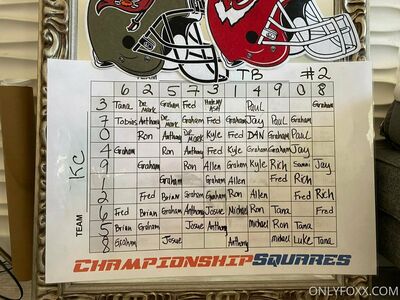 TEAM TB #2
6 2 5 7 3 1 4 9 0 8
3 Tana Graham Fred Paul Graham
7 Tobias Anthony Graham Fred Graham Jay Paul Graham
0 Ron Anthony Kyle Fred DAN Graham Paul
4 Graham Ron Anthony Fred Kyle Graham Graham Jay
9 Graham Ron Allen Graham Kyle Rich Jay
1 Graham Graham Allen Fred Rich
2 Fred Brian Graham Ron Allen Fred Rich
6 Fred Brian Graham Anthony Josue Michael Ron Tana Fred
5 Brian Graham Josue Anthony Michael Ron Tana
8 Graham Josue Anthony Michael Luke Tana
TEAM KC
CHAMPIONSHIP SQUARES
ONLYFOXX.COM